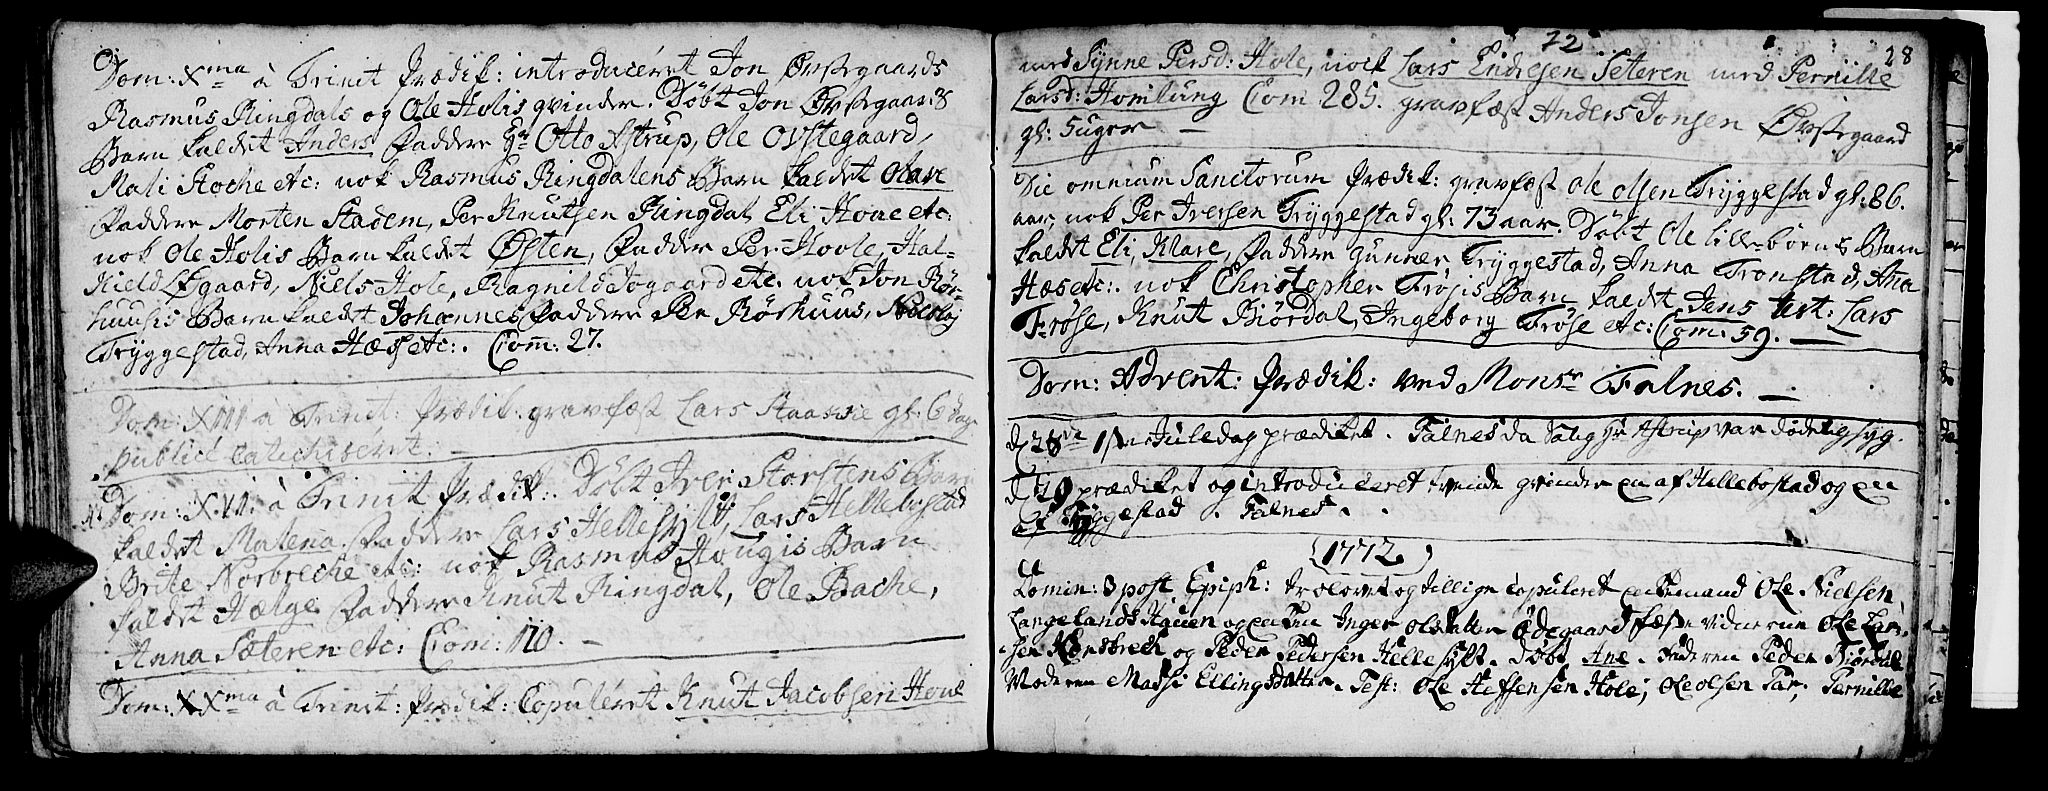 Dom: Xma à Trinit Prædik: introduceret Jon Øvstegaards
Rasmus Ringdals og Ole Holis qvinder. Døbt Jon Øvstegaards
Barn kaldet Anders Faddere Hr Otto Astrup, Ole Ovstegaard,
Mali Hoche etc: nok Rasmus Ringdalens Barn kaldet Olave
Faddere Morten Stadem, Per Knutsen Ringdal Eli Hove etc:
nok Ole Holis Barn kaldet Østen, Faddere Per Hoole, Hal-
kield Øgaard, Niels Hole, Ragnild Øogaard etc. nok Jon Rør-
huusis Barn kaldet Johannes Faddere Per Rørhuus, Nicolaj
Tryggestad, Anna Hæs etc:. Com: 27.
Dom: XIII à Trinit: Prædik: gravfæst Lars Staavie gl: 6 dage
publicè catechiseret.
Dom: XVI à Trinit Prædik: Døbt Iver Storstens Barn
kaldet Malena. Faddere Lars Hellesylt, Lars Hellebostad
Brite Norbreche etc: nok Rasmus Hougis Barn
kaldet Hælge Faddere Knut Ringdal, Ole Bache,
Anna Sæteren etc: Com: 110.
Dom: XXma à Trinit: Prædik: Copuleret Knut Jacobsen Hove
72 28
med Synne Persd: Hole, nock Lars Endresen Seteren med Pernille
Larsd: Homlung Com 285. gravfæst Anders Jonsen Øvstegaard
gl: 5 uger
Die omnium Sanctorum Prædik: gravfæst Ole Olsen Tryggestad gl: 86.
aar, nok Per Iversen Tryggestad gl: 73 aar. Døbt Ole Lillebørns Barn
kaldet Eli, Mare, Faddere Gunner Tryggestad, Anna Tronstad, Ana
Hæs etc:. nok Christopher Frøsis Barn kaldet Jens test: Lars
Frøse, Knut Biørdal, Ingeborg Frøse etc: Com: 59.
Dom: Advent: Prædik: ved Monsr Falnes.
d 28de 1ste Juledag prædiket. Falnes da Salig Hr Astrup var dødelig syg.
d 29 prædiket og introduceret tvende qvinder en af Hellebostad og en
af Tryggestad. Falnes.
1772
Domin: 3 post Epiph: troloret og tillige copuleret Ole Nielsen
Langelands Hauen og Inger Ols datter Ødegaard Vidneren Ole Lar-
sen Kornsbrech og Peder Pedersen Hellesylt. døbt Ane. Faderen Peder Biørdal
Moderen Massi Ellings datter. Test: Ole Steffensen Hole, Ole Olsen Tar, Pernille